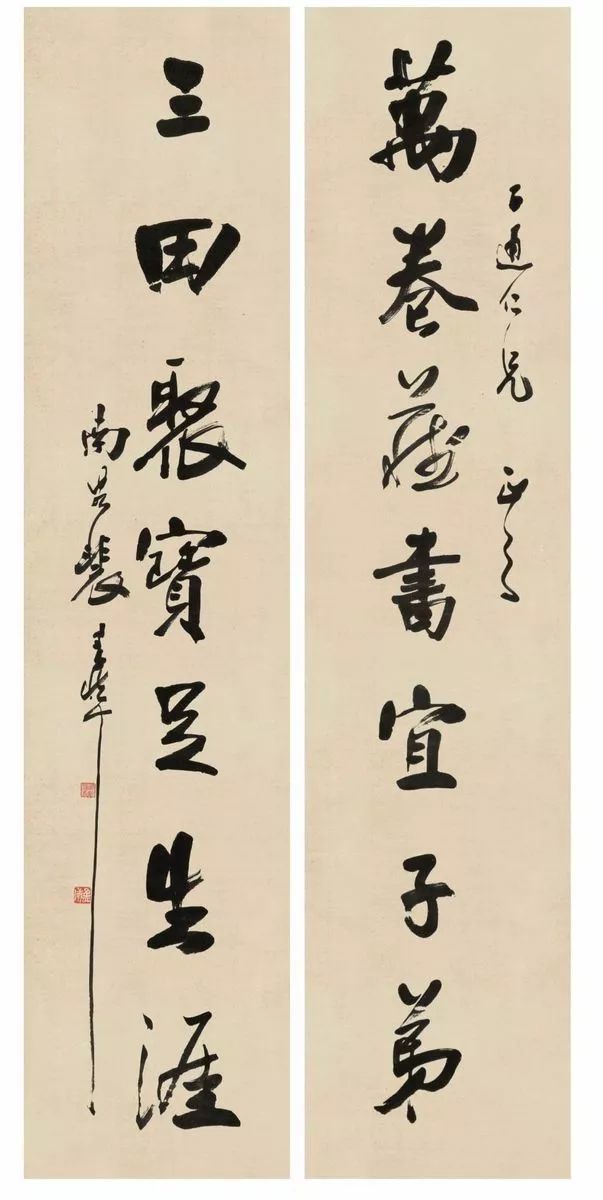 通仁兄 正之
萬卷藏書宜子弟
三田聚寶足生涯
南 裴